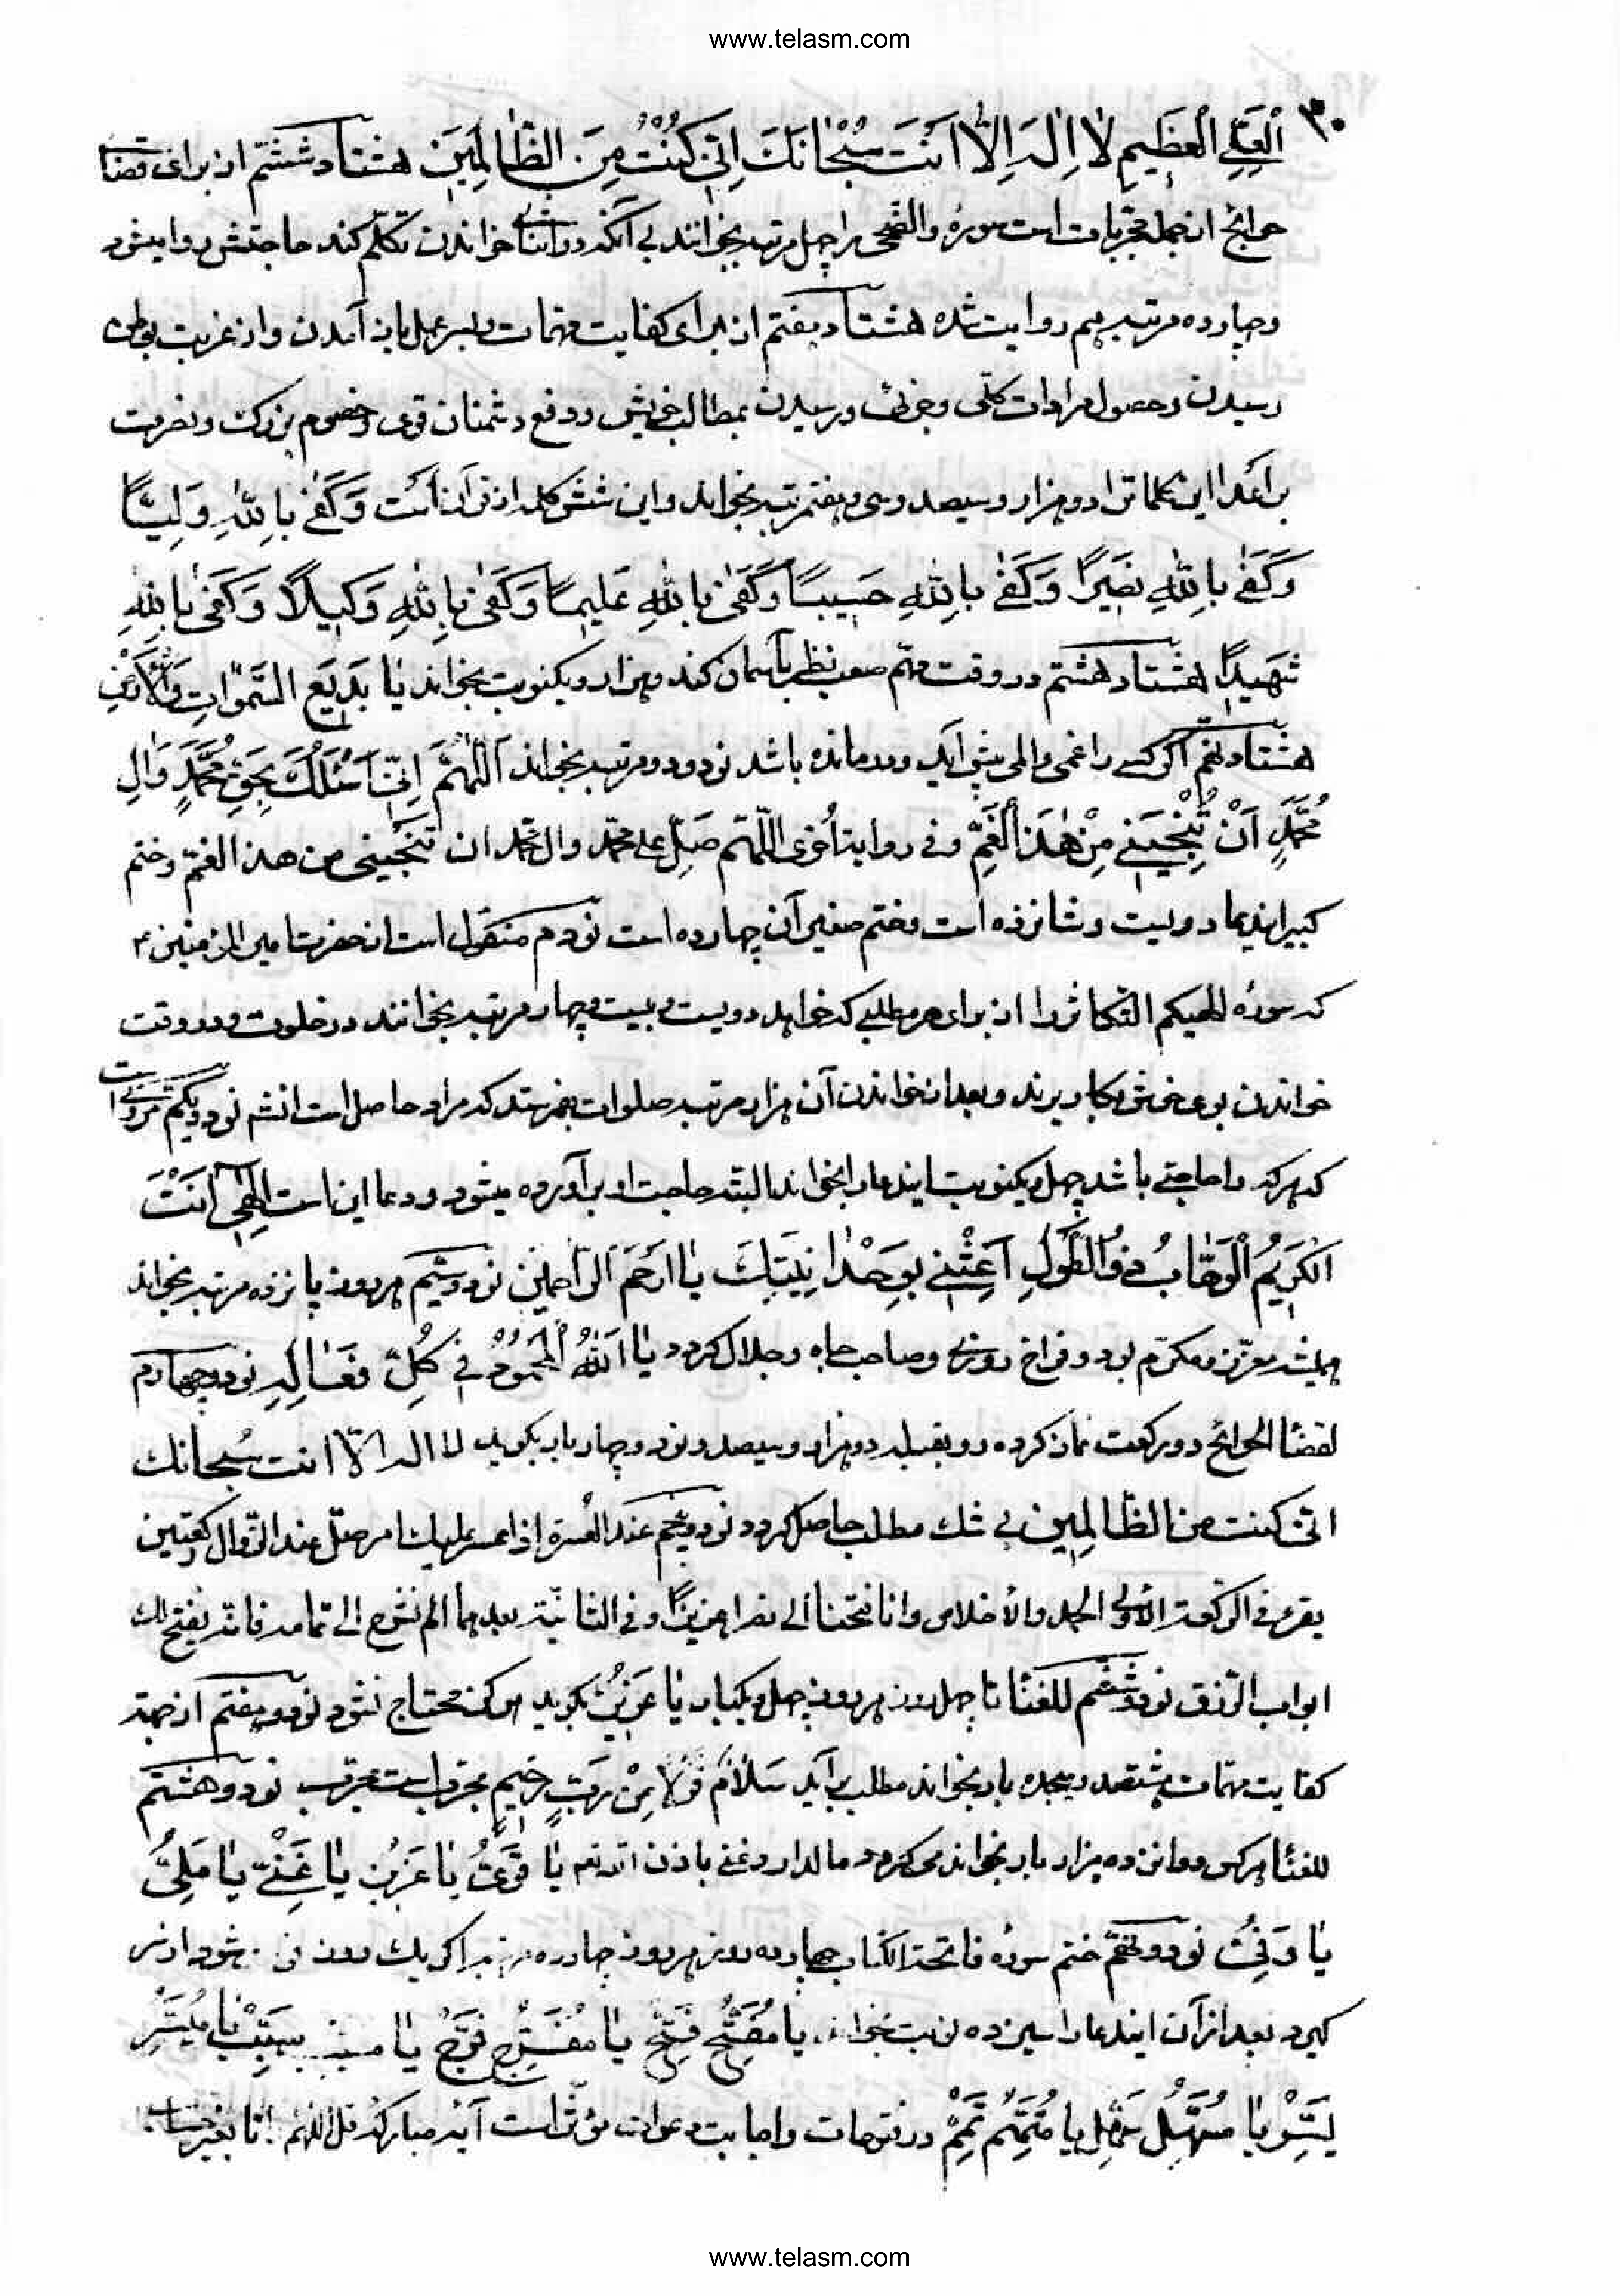 www.telasm.com
۳۰
الْعَلِيِّ الْعَظِيمِ لٰا اِلٰهَ اِلّٰا اَنْتَ سُبْحٰانَكَ اِنّي كُنْتُ مِنَ الظّٰالِمينَ هشتاد ششتم از برای قضاء
حوائج از جمله مجرباتست سوره والضحی را چهل مرتبه بخوانند بی آنکه در اثنای خواندن تکلم کند حاجتش روا میشود
و چهارده مرتبه هم روایت شده هشتاد هفتم از برای کفایت مهمات و بسر عمل باز آمدن و از غربت بوطن
رسیدن و حصول مرادات کلی و جزئی و رسیدن بمطالب خویش و دفع دشمنان قوی و خصوم بزرک و نصرت
بر اعدا این کلماترا دو هزار و سیصد و سی و هفتمرتبه بخواند و این شش کلمه از قرآنست وَ كَفٰى بِاللّٰهِ وَلِيًّا
وَ كَفٰى بِاللّٰهِ نَصيرًا وَ كَفٰى بِاللّٰهِ حَسيبًا وَ كَفٰى بِاللّٰهِ عَليمًا وَ كَفٰى بِاللّٰهِ وَكيلًا وَ كَفٰى بِاللّٰهِ
شَهيدًا هشتاد هشتم در وقت مهم صعب نظر بآسمان کند و هزار و یکنوبت بخواند يٰا بَديعَ السَّمٰوٰاتِ وَالْاَرْضِ
هشتاد نهم اکر کسی را غمی والمی پیش آید و درمانده باشد نود و دو مرتبه بخواند اَللّٰهُمَّ اِنّي اَسْئَلُكَ بِحَقِّ مُحَمَّدٍ وَاٰلِ
مُحَمَّدٍ اَنْ تُنْجِيَني مِنْ هٰذَا الْغَمِّ و فی روایة اُخری اللّهمّ صَلّ علی محمّد وال محمّد ان تنجّینی من هذا الغمّ و ختم
کبیر ایندعا دویست و شانزده است و ختم صغیر آن چهارده است نودم منقول است از حضرت امیرالمؤمنین ع
که سوره الهیکم التکاثر را از برای هر مطلبی که خواهد دویست و بیست و چهار مرتبه بخوانند در خلوت و در وقت
خواندن بوی خوش بکار برند و بعد از خواندن آن هزار مرتبه صلوات بفرستد که مراد حاصل است انشم نود ویکم مرویست
که هرکه را حاجتی باشد چهل ویکنوبت ایندعا را بخواند البته حاجت او برآورده میشود و دعا این است اِلٰهي اَنْتَ
الْكَريمُ الْوَهّٰابُ ذُو الطَّوْلِ اَغِثْني بِوَحْدٰانِيَّتِكَ يٰا اَرْحَمَ الرّٰاحِمينَ نود و سیم هر روز پانزده مرتبه بخواند
همیشه معزز و مکرّم بود و فراخ روزی و صاحب جاه و جلال کردد يٰا اَللّٰهُ الْمَحْمُودُ في كُلِّ فَعٰالِهِ نود و چهارم
لقضاء الحوائج دو رکعت نماز کرده رو بقبله دو هزار و سیصد و نود و چهار بار بکوید لا اله الّا انت سُبحانك
انّی کنت من الظّالمین بی شك مطلب حاصل کردد نود و پنجم عند العُسرة اذا عسر علیك امر صلّ عند الزّوال رکعتین
یقرء فی الرکعة الاولی الحمد والاخلاص وانا فتحنا الی نصرا عزیزًا وفی الثانیّة بعدهما الم نشرح الی تمامه فانّه یفتح لك
ابواب الرّزق نود و ششم للغناء تا چهل روز هر روز چهل ویکبار یا عَزيزُ بکوید هرکز محتاج نشود نود و هفتم از جهة
کفایت مهمّات هشتصد و هیجده بار بخواند مطلب برآید سَلٰامٌ قَوْلًا مِنْ رَبٍّ رَحيمٍ مجرّبست مجرّب نود و هشتم
للغناء هرکس دوانزده هزار بار بخواند می کردد مالدار و غنی باذن الله تعم يٰا قَوِيُّ يٰا عَزيزُ يٰا غَنِيُّ يٰا مَلِيُّ
يٰا وَفِيُّ نود و نهم ختم سوره فاتحة الکتاب چهارده روز هر روز چهارده اکر یك روز شود از سر
کیرد بعد از آن ایندعا را سیزده نوبت بخواند يٰا مُفَتِّحُ فَتِّحْ يٰا مُفَرِّجُ فَرِّجْ يٰا سَبِّبْ يٰا مُيَسِّرُ
يَسِّرْ يٰا مُسَهِّلُ سَهِّلْ يٰا مُتَمِّمُ تَمِّمْ در فتوحات و اجابت دعوات مؤثر است آیه مبارکه قل اللهم تا بغیر حساب
www.telasm.com